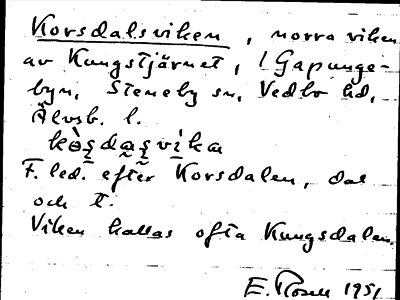 Korsdalsviken, norra viken
av Kungstjärnet, i Gapunge-
byn, Steneby sn, Vedbo hd,
Älvsb. l.
kòs̥das̥vìka
F. led. efter Korsdalen, dal
och t.
Viken kallas ofta Kungsdalen.
E. Rosell 1951